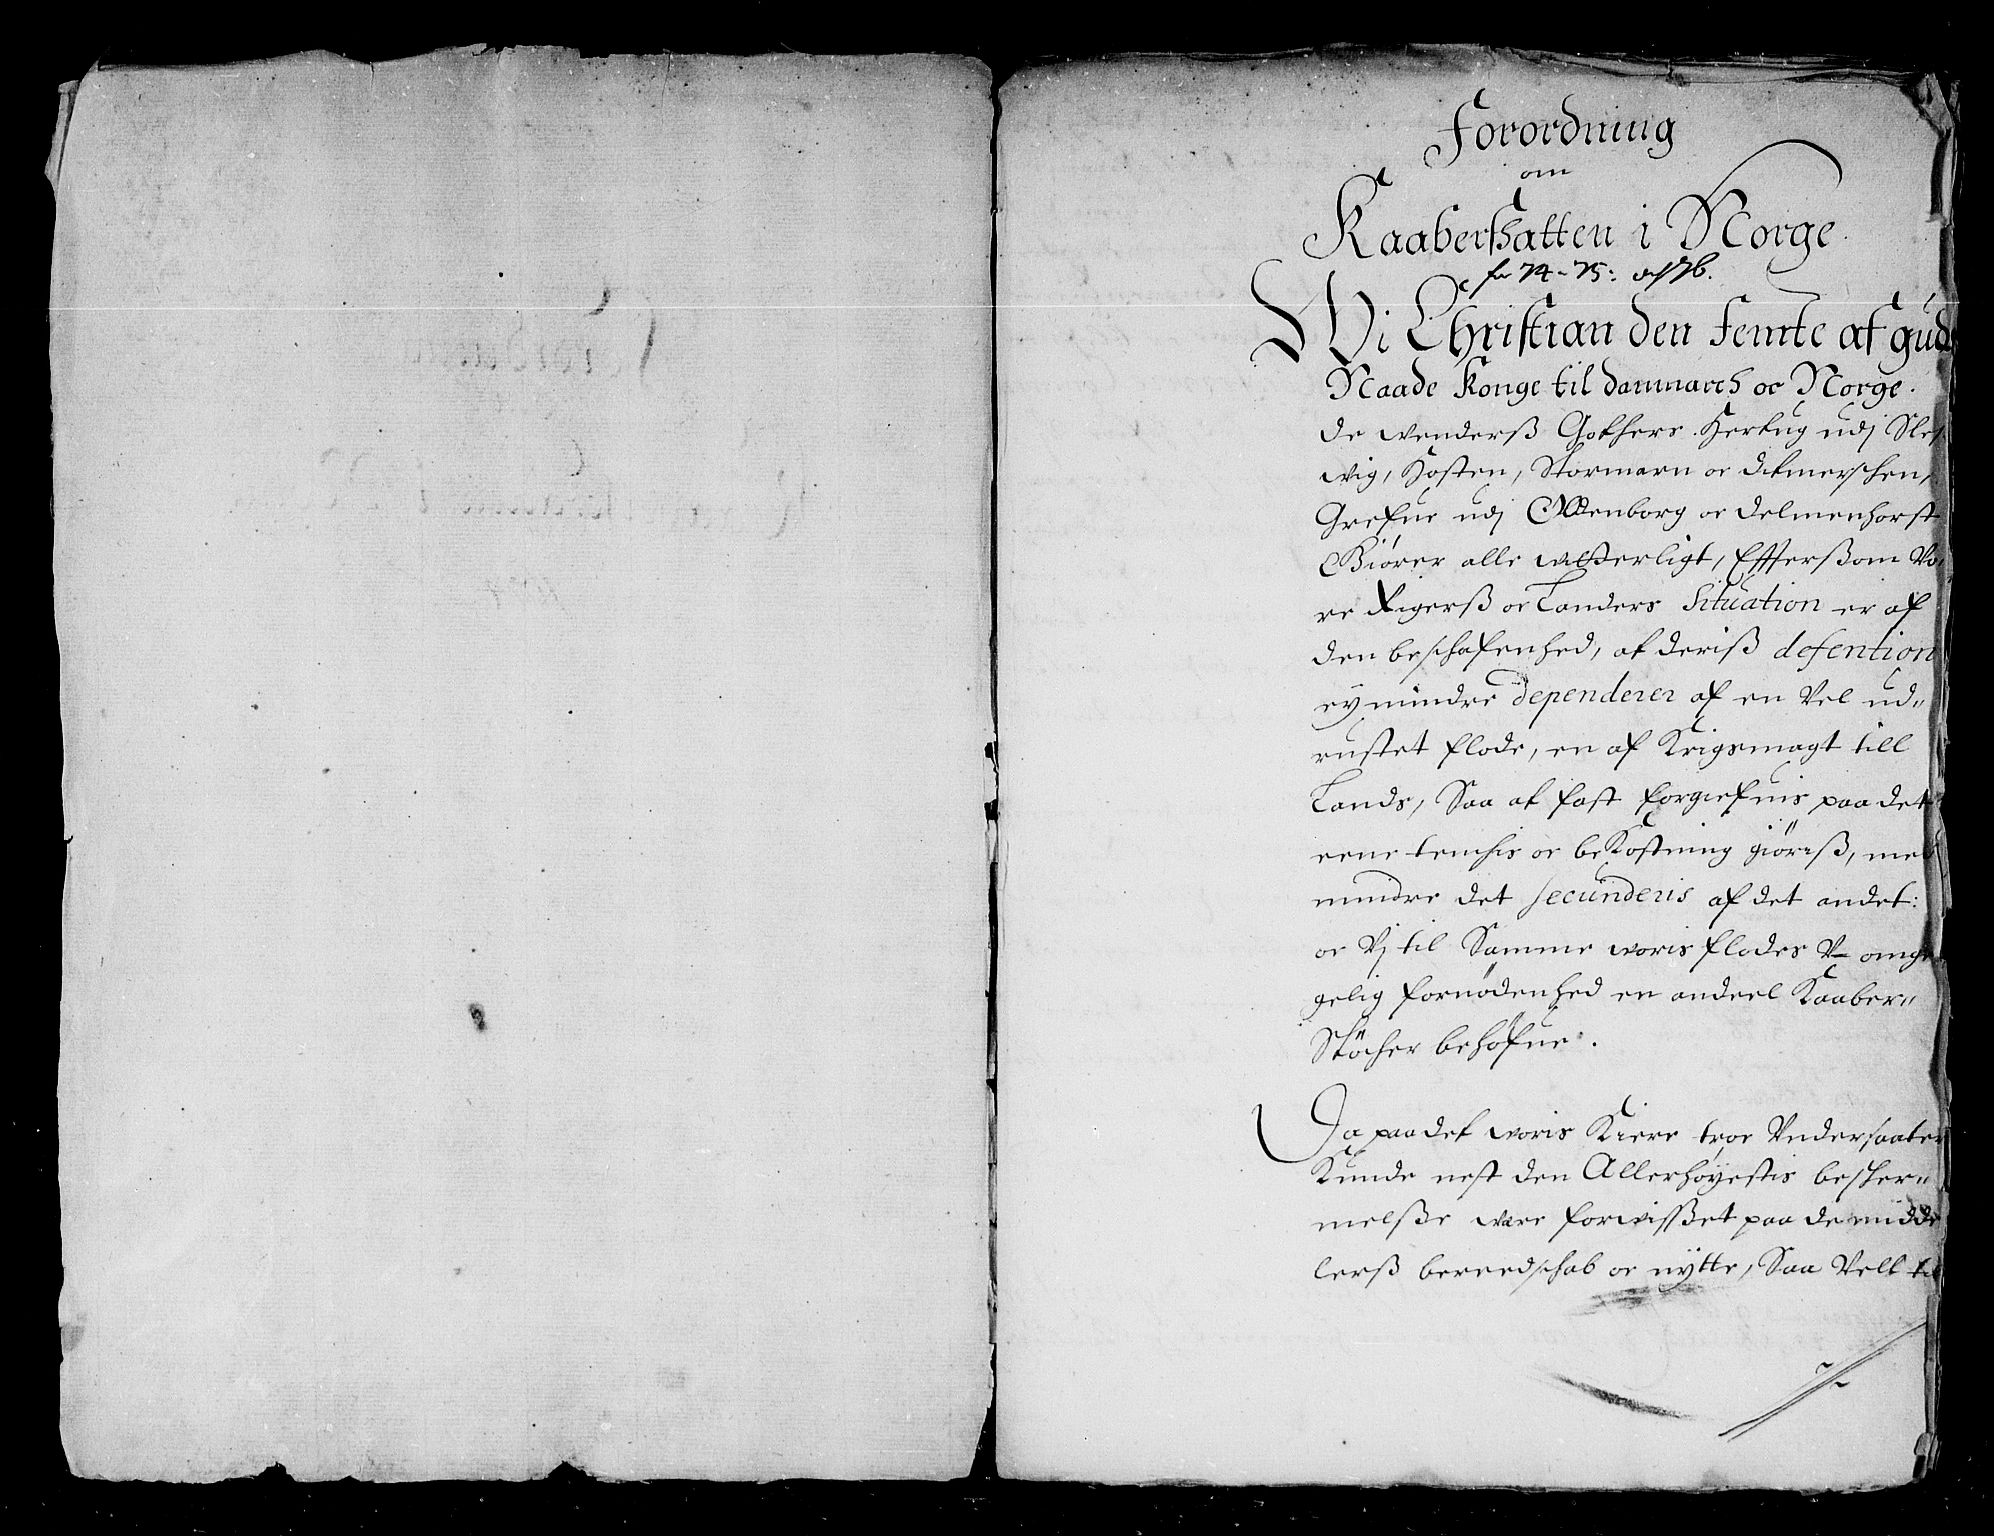 Forordning
om
Kaaberskatten i Norge.
for 74-75: och 76.
Wi Christian den Femte af guds
Naade Konge til danmarch oc Norge.
de wenderß Gothers. Hertug udj Sles-
wig, Holsten, Stormarn oc Ditmerschen,
Grefue udj Oldenborg oc Delmenhorst
Giörer alle witterligt, Effterßom Vo-
re Rigerß oc Landers Situation er af
den beschafenhed, at deriß defention
ey mindre dependerer af en Vel ud-
rustet flode, en af Krigsmagt till
Lands, Saa at fast forgiefuis paa det
eene tenchis oc bekostning giöreß, med
mindre det secunderis af det andet:
oc Vj til Samme woris flodes V-omgen-
gelig fornödenhed en andeel Kaaber-
Stöcher behöfue.
Da paa det woris Kiere troe Vndersaater
Kunde nest den Allerhöyestis besker-
melße were forwisset paa de midde
lerß bereedschab oc nytte, Saa Vell til